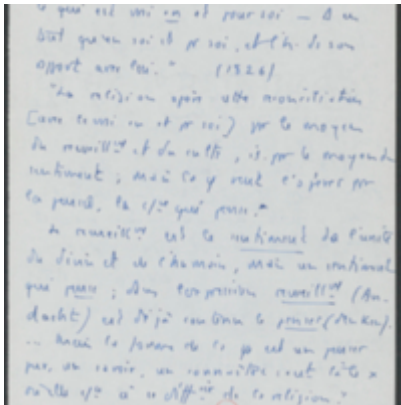 ce qui est vrai en et pour soi — d'un
être qu'en soi et pr soi, et l'h. de son
rapport avec lui." (1826)
"La religion opère cette réconciliation
[avec le vrai en et pr soi] par le moyen
du recueillmt et du culte, i.e. par le moyen du
sentiment ; mais la φ veut l'opérer par
la pensée, la c/ce qui pense."
Le recueillmt est le sentiment de l'unité
du divin et de l'humain, mais un sentiment
qui pense ; dans l'expression recueillmt (An-
dacht) est déjà contenu le penser (denken).
... Mais la forme de la φ est un penser
pur, un savoir, un connaître
de la religion."